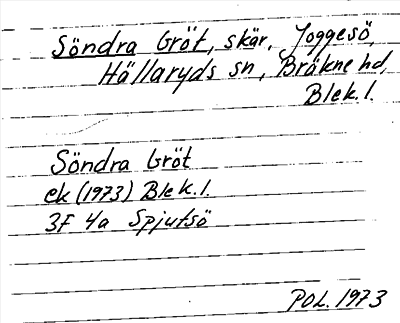 Söndra Gröt, skär, Joggesö
Hällaryds sn, Bräkne hd,
Blek. l.
Söndra Gröt
ek (1973) Blek. l.
3F 4a Spjutsö
POL. 1973